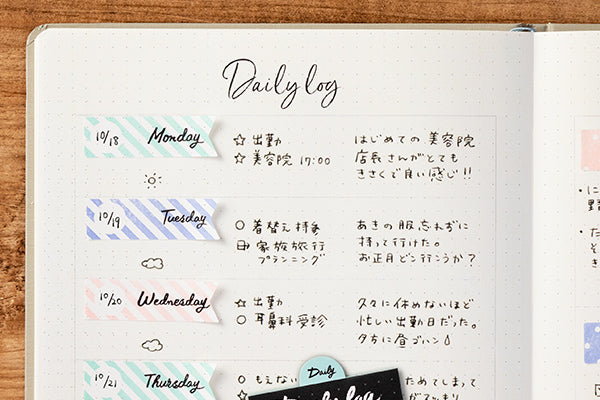 Daily log
10/18 Monday
☆ 出勤
☆ 美容院 17:00
はじめての 美容院
店長さんがとても
きさくで良い感じ!!
10/19 Tuesday
○ 着替え持参
家族旅行
プランニング
あきの服忘れずに
持って行けた。
お正月どこ行こうか?
10/20 Wednesday
☆ 出勤
○ 耳鼻科 受診
久々に休めないほど
忙しい出勤日だった。
夕方に昼ゴハン
10/21 Thursday
○ もえない
ためてしまって
Daily